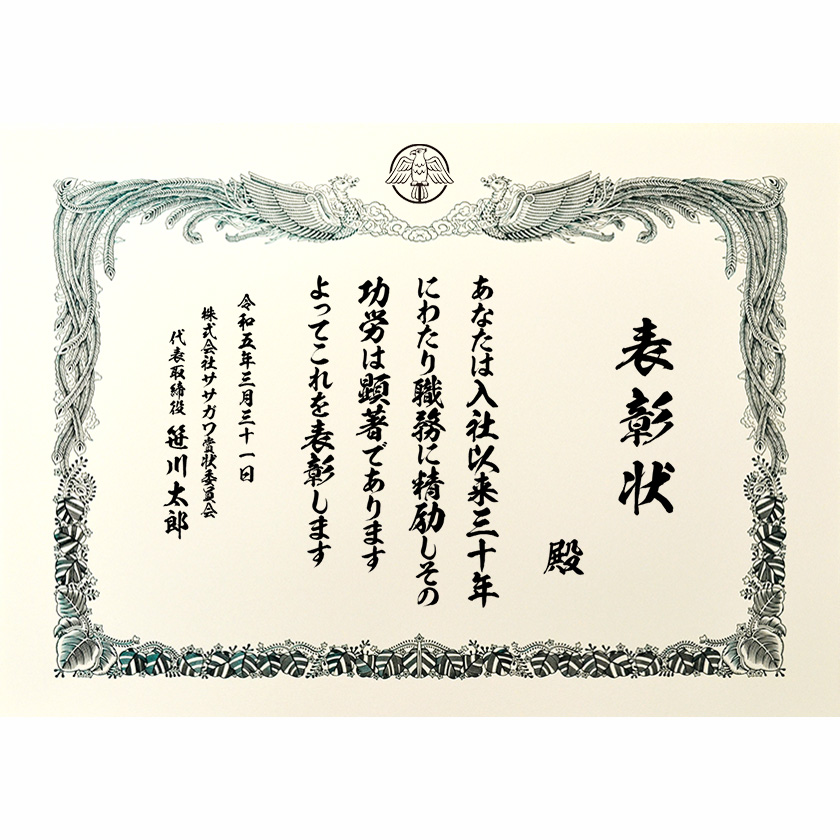 表彰状
殿
あなたは入社以来三十年
にわたり職務に精励しその
功労は顕著であります
よってこれを表彰します
令和五年三月三十一日
株式会社ササガワ賞状委員会
代表取締役 笹川太郎